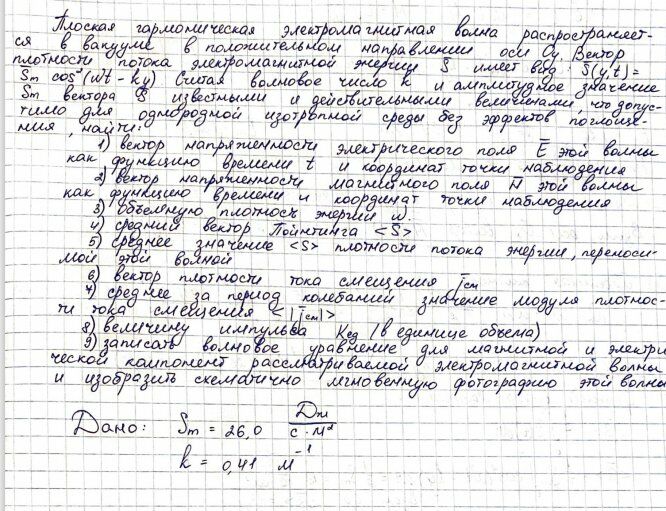 Плоская гармоническая электромагнитная волна распространяет-
ся в вакууме в положительном направлении оси Oy. Вектор
плотности потока электромагнитной энергии S имеет вид: S̄(y,t)=
S̄m cos²(ωt - ky) Считая волновое число k и амплитудное значение
Sm вектора S̄ известными и действительными величинами, что допус-
тимо для однородной изотропной среды без эффектов поглоще-
ния, найти:
1) вектор напряженности электрического поля Ē этой волны
как функцию времени t и координат точки наблюдения
2) вектор напряженности магнитного поля H̄ этой волны
как функцию времени и координат точки наблюдения
3) Объемную плотность энергии ω.
4) средний вектор Пойнтинга <S̄>
5) среднее значение <S> плотности потока энергии, переноси-
мой этой волной
6) вектор плотности тока смещения j̄см
7) среднее за период колебаний значение модуля плотнос-
ти тока смещения <|j̄см|>
8) величину импульса Kед (в единице объема)
9) записать волновое уравнение для магнитной и электри
ческой компонент рассматриваемой электромагнитной волны
и изобразить схематично мгновенную фотографию этой волны
Дано: Sm = 26,0 Дж/с·м²
k = 0,41 м⁻¹